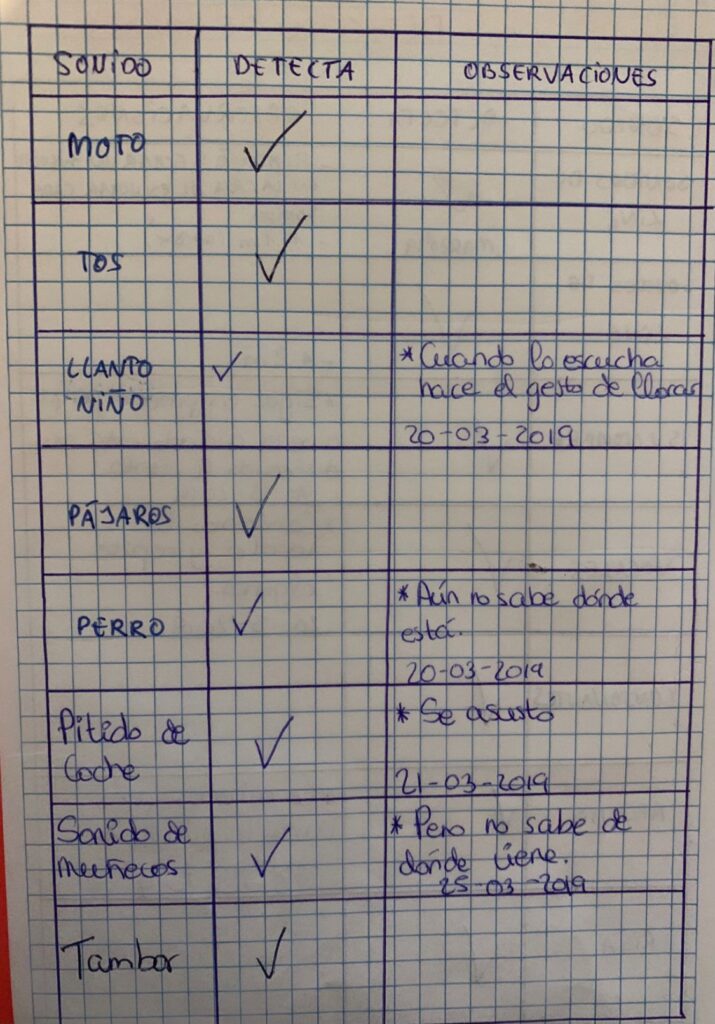 SONIDO DETECTA OBSERVACIONES
MOTO ✓
TOS ✓
LLANTO ✓ * Cuando lo escucha
NIÑO hace el gesto de llorar
20-03-2019
PÁJAROS ✓
PERRO ✓ * Aún no sabe dónde
está.
20-03-2019
Pitido de ✓ * Se asustó
Coche 21-03-2019
Sonido de ✓ * Pero no sabe de
muñecos dónde viene.
25-03-2019
Tambor ✓